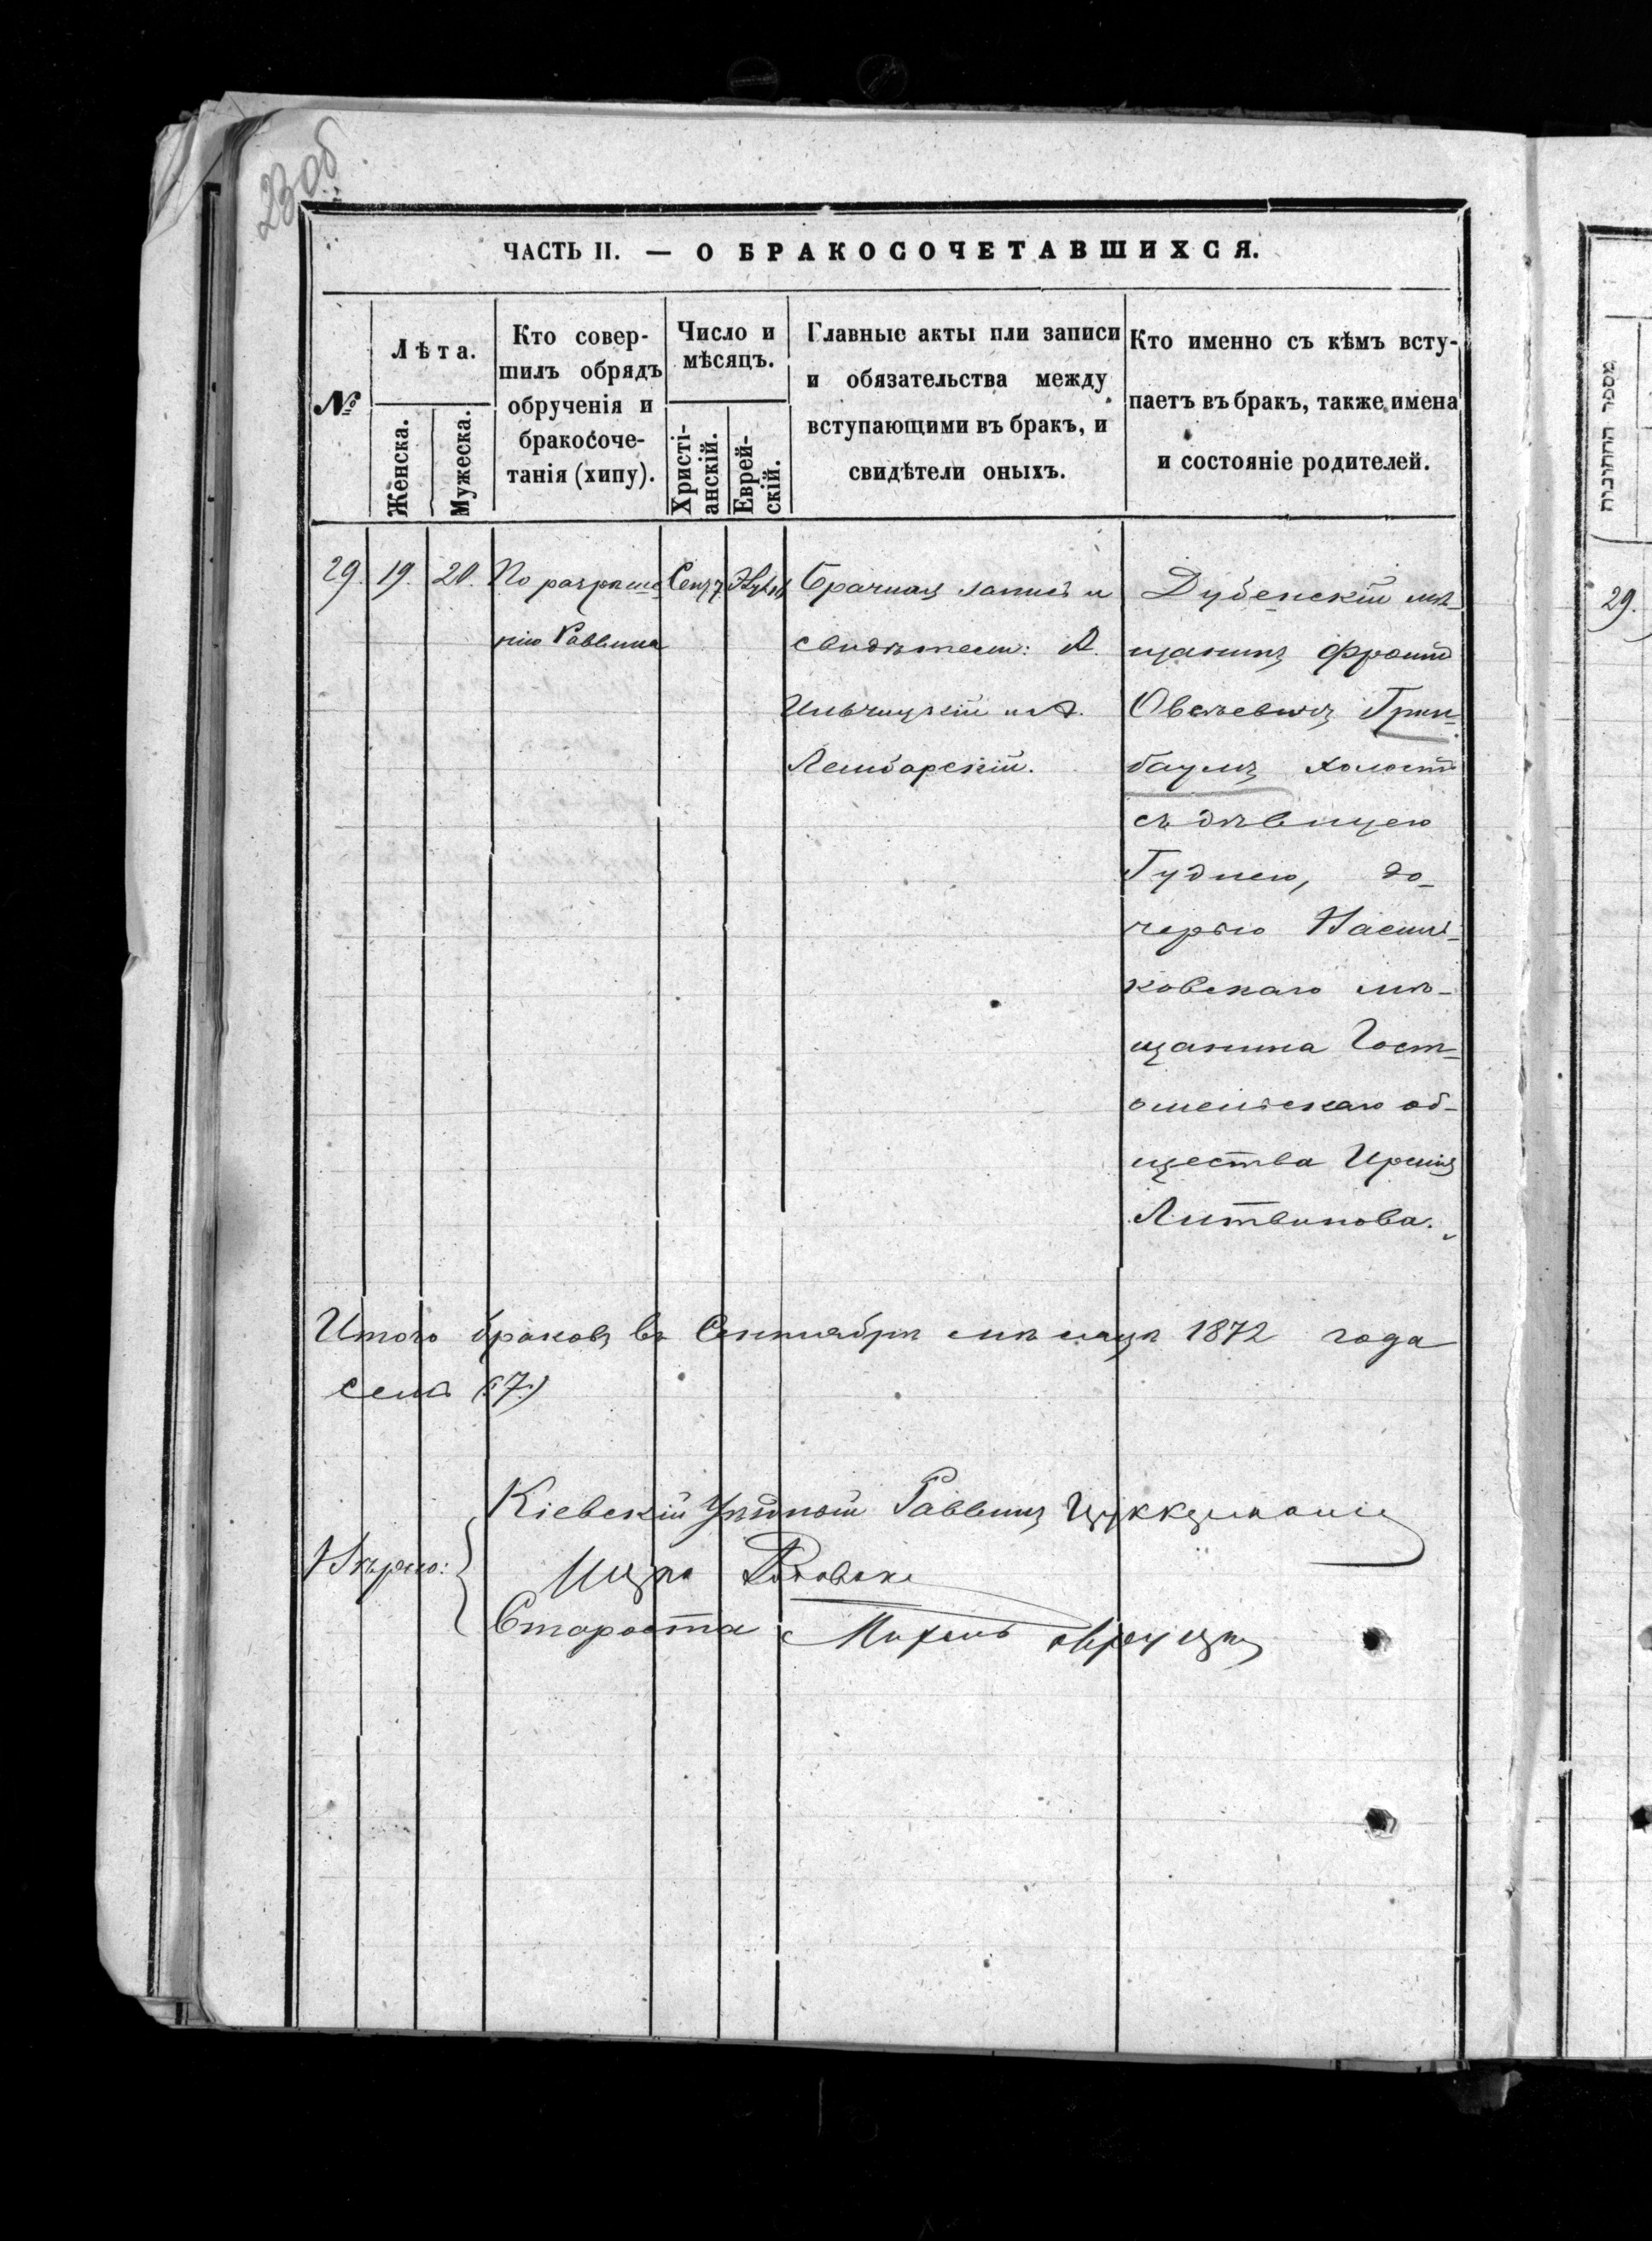 23 об
ЧАСТЬ II. — О БРАКОСОЧЕТАВШИХСЯ.
№
Лѣта.
Женска.
Мужеска.
Кто совер-
шилъ обрядъ
обрученія и
бракосоче-
танія (хипу).
Число и
мѣсяцъ.
Христі-
анскій.
Еврей-
скій.
Главные акты или записи
и обязательства между
вступающими въ бракъ, и
свидѣтели оныхъ.
Кто именно съ кѣмъ всту-
паетъ въ бракъ, также имена
и состояніе родителей.
29. 19. 20. По разрѣше-
нію Раввина
Сен.
Брачная запись и
свидѣтели: А.
и А.
Лембарскій.
Дубенскій мѣ-
щанинъ Фроимъ
Овсѣевичъ Грин-
баумъ холостъ
съ дѣвицею
Гуднею, до-
черью Василь-
ковскаго мѣ-
щанина Гост-
омельскаго об-
щества Ирша
Литвинова.
Итого браковъ въ Сентябрѣ мѣсяцѣ 1872 года
семь (7)
Вѣрно:
Кіевскій Уѣздный Раввинъ Цуккерманъ
Староста
מספר החתונות
29.